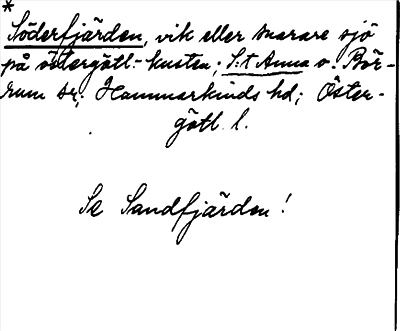 *
Söderfjärden, vik eller snarare sjö
på östergötl.-kusten; S:t Anna o. Bör-
rum sn; Hammarkinds hd; Öster-
götl. l.
Se Sandfjärden!